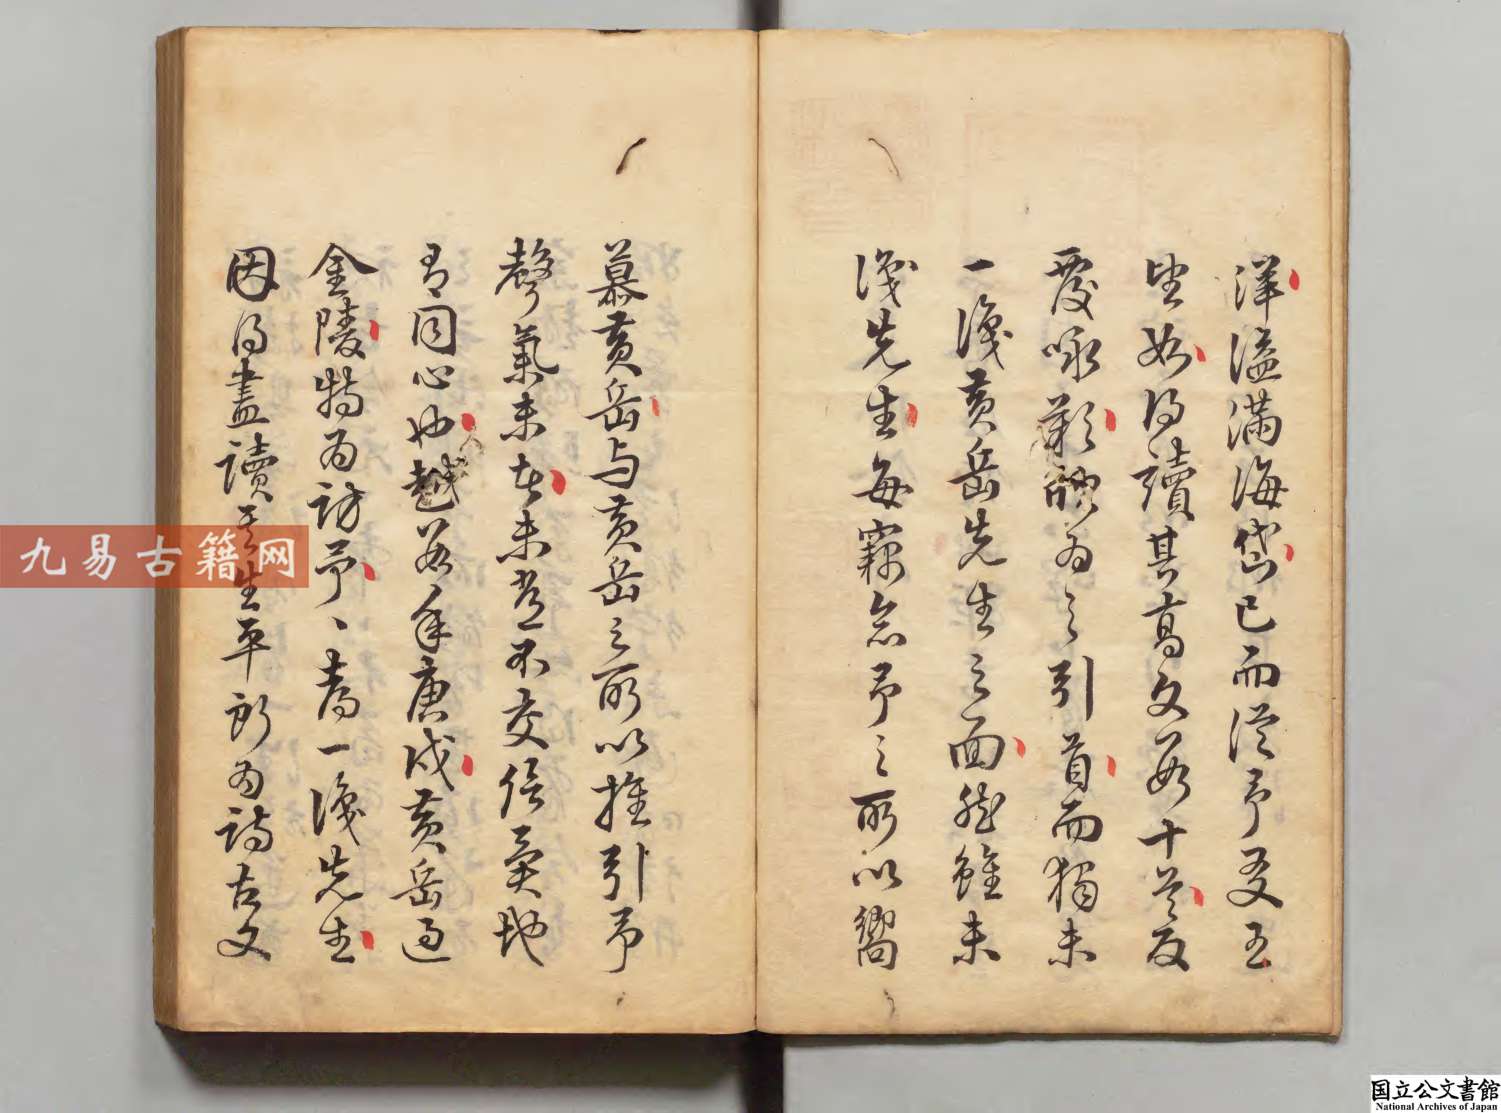 洋溢滿海岱已而從予友王
坐如得讀其高文若十首反
覆咏歎能為之引首而獨未
一識黄岳先生之面然雖未
識先生每竊念予之所以嚮
慕黄岳与黄岳之所以推引予
聲氣未孚未嘗不交信異地
有同心也越若年庚戌黄岳過
金陵特為訪予、喜一識先生
因得盡讀其生平所為詩古文
九易古籍网
国立公文書館
National Archives of Japan